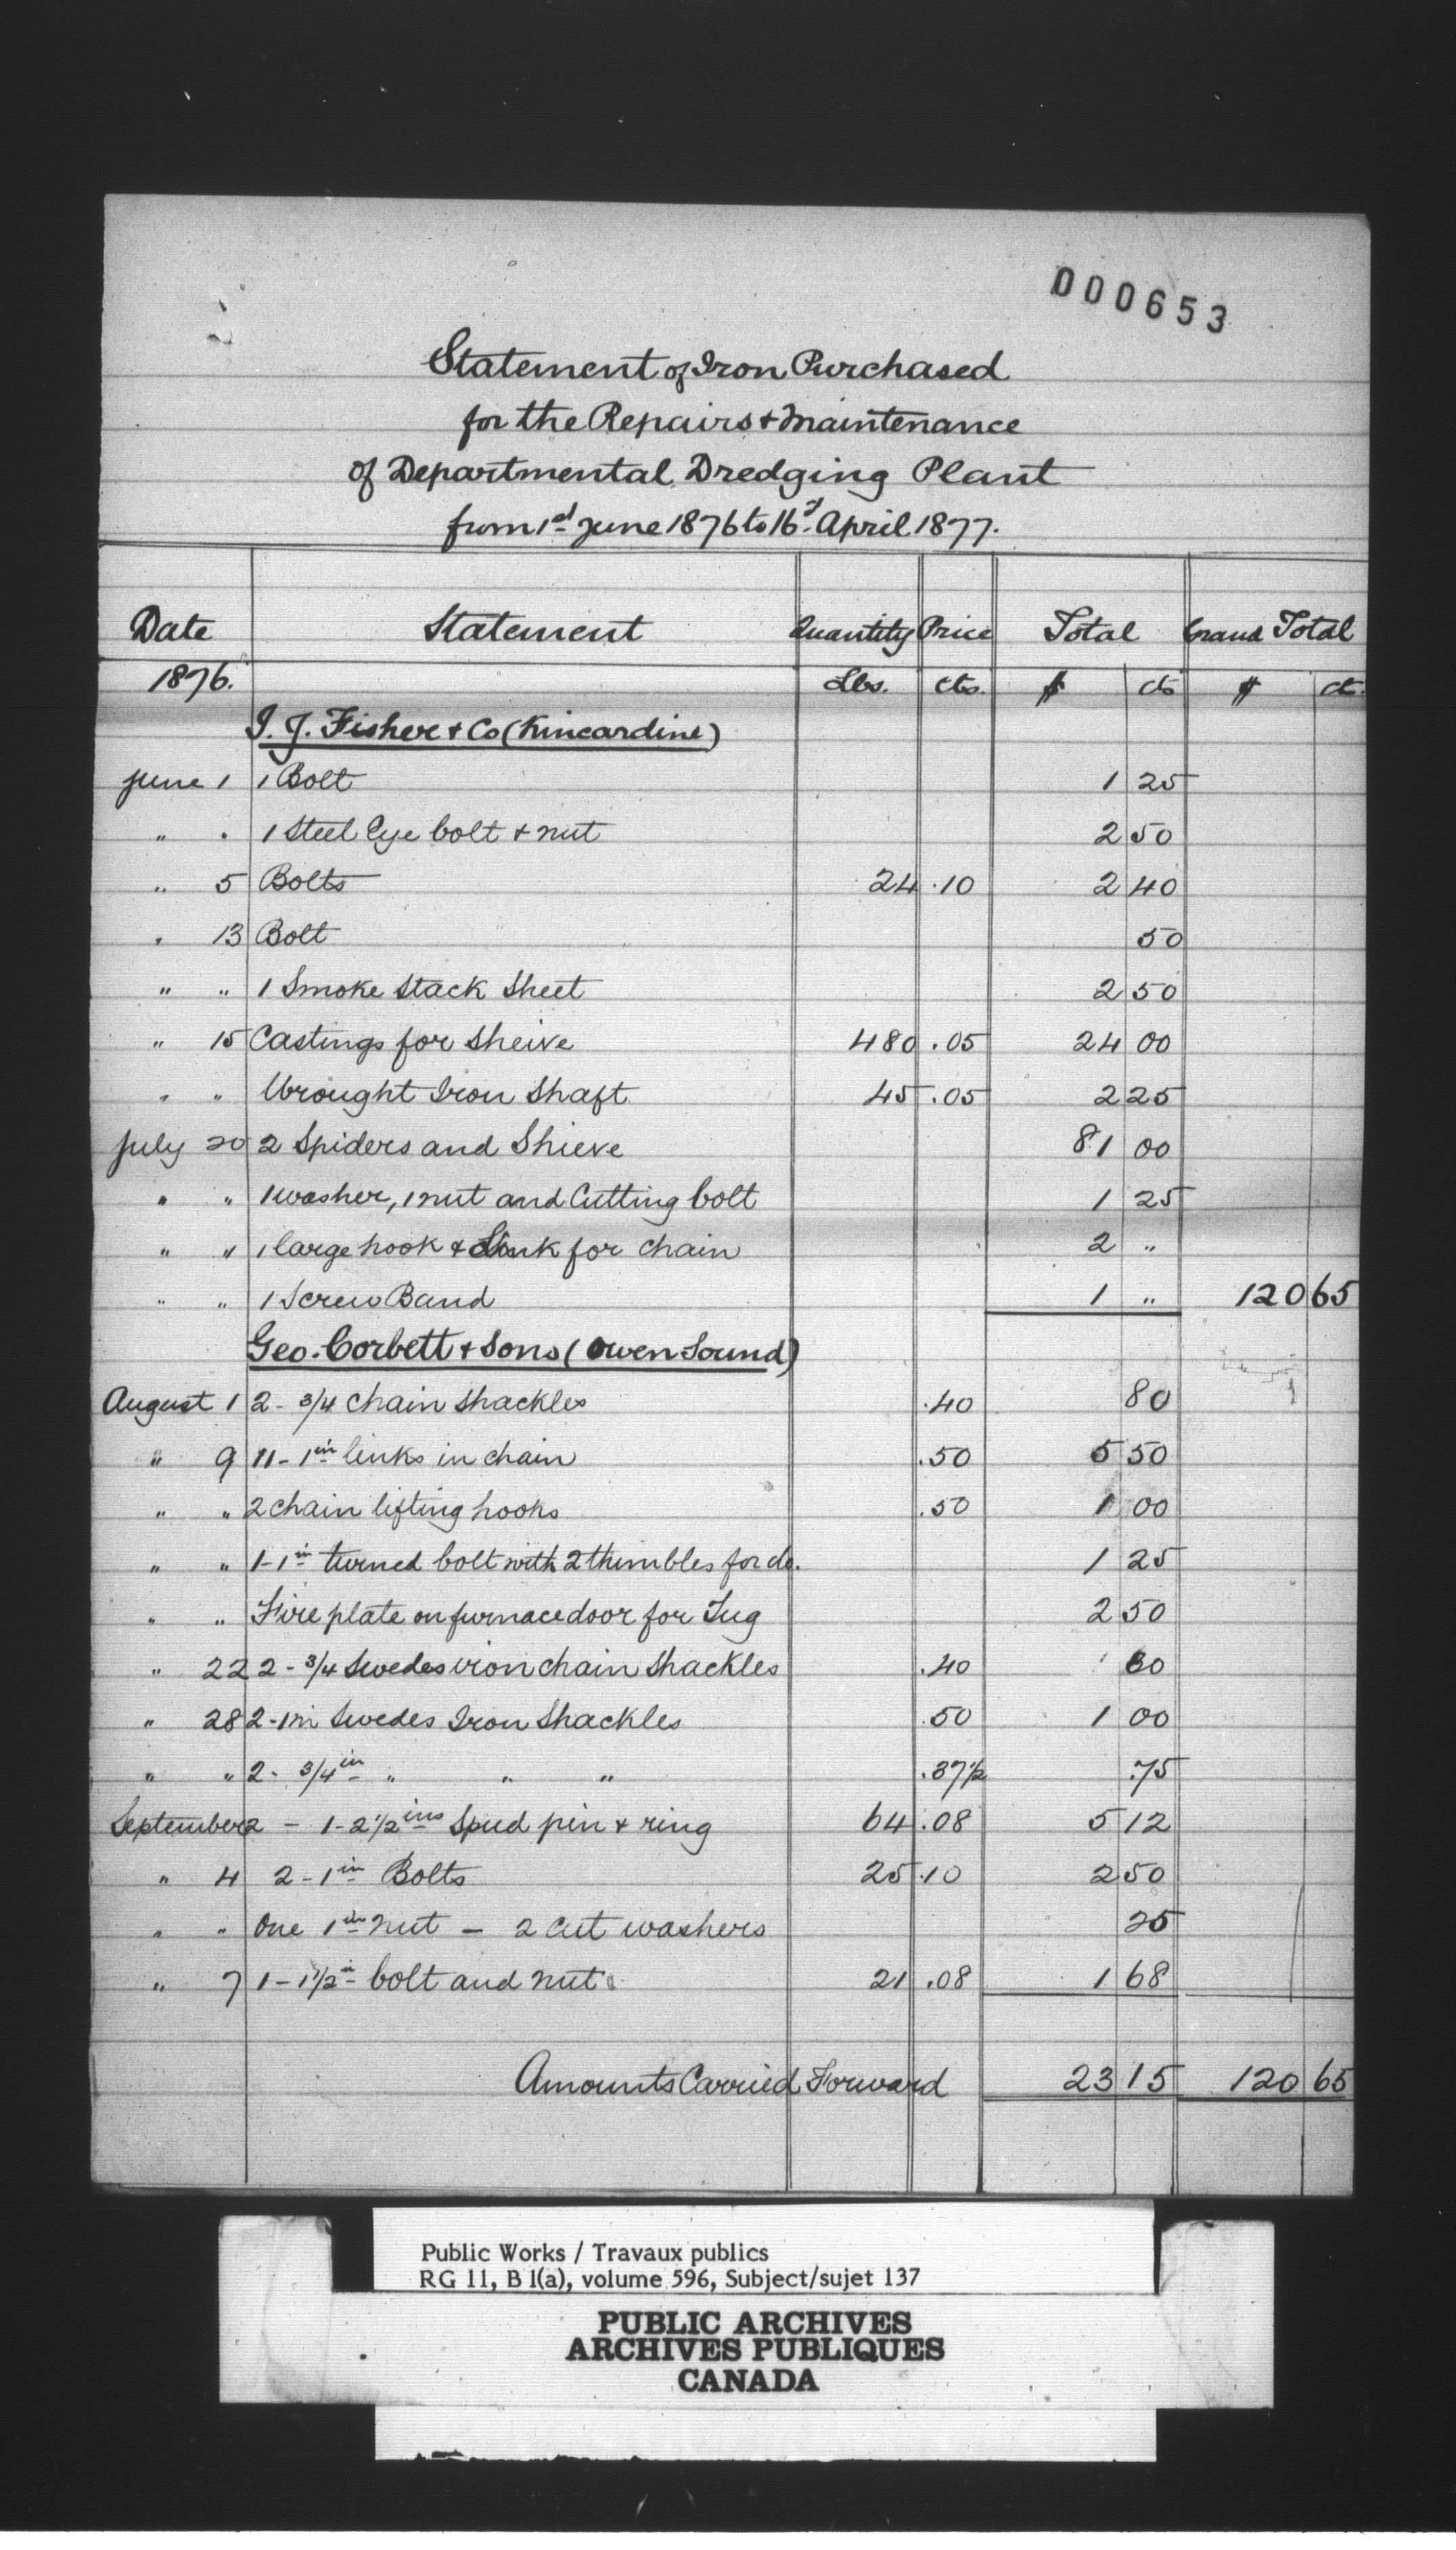 000653
Statement of Iron Purchased
for the Repairs & Maintenance
of Departmental Dredging Plant
from 1st June 1876 to 16th April 1877.
Date Statement Quantity Price Total Grand Total
1876. Lbs. cts. $ cts $ ct.
I. J. Fisher & Co (Kincardine)
June 1 1 Bolt 1 25
" " 1 Steel Eye bolt & nut 2 50
" 5 Bolts 24 .10 2 40
" 13 Bolt 50
" " 1 Smoke Stack Sheet 2 50
" 15 Castings for Sheive 480 .05 24 00
" " Wrought Iron Shaft 45 .05 2 25
July 20 2 Spiders and Shieve 81 00
" " 1 washer, 1 nut and Cutting bolt 1 25
" " 1 large hook & Link for Chain 2 "
" " 1 Screw Band 1 " 120 65
Geo. Corbett & Sons (Owen Sound)
August 1 2 - 3/4 Chain Shackles .40 80
" 9 11 - 1in links in chain .50 5 50
" " 2 chain lifting hooks .50 1 00
" " 1-1in turned bolt with 2 thimbles for do. 1 25
" " Fire plate on furnace door for Tug 2 50
" 22 2 - 3/4 Swedes iron chain Shackles .40 80
" 28 2 - 1in Swedes Iron Shackles .50 1 00
" " 2 - 3/4in " " " .37½ .75
September 2 - 1-2½ins Spud pin & ring 64 .08 5 12
" 4 2 - 1in Bolts 25 .10 2 50
" " One 1in nut - 2 cut washers 25
" 7 1 - 1½in bolt and nut 21 .08 1 68
Amounts Carried Forward 23 15 120 65
Public Works / Travaux publics
RG 11, B 1(a), volume 596, Subject/sujet 137
PUBLIC ARCHIVES
ARCHIVES PUBLIQUES
CANADA